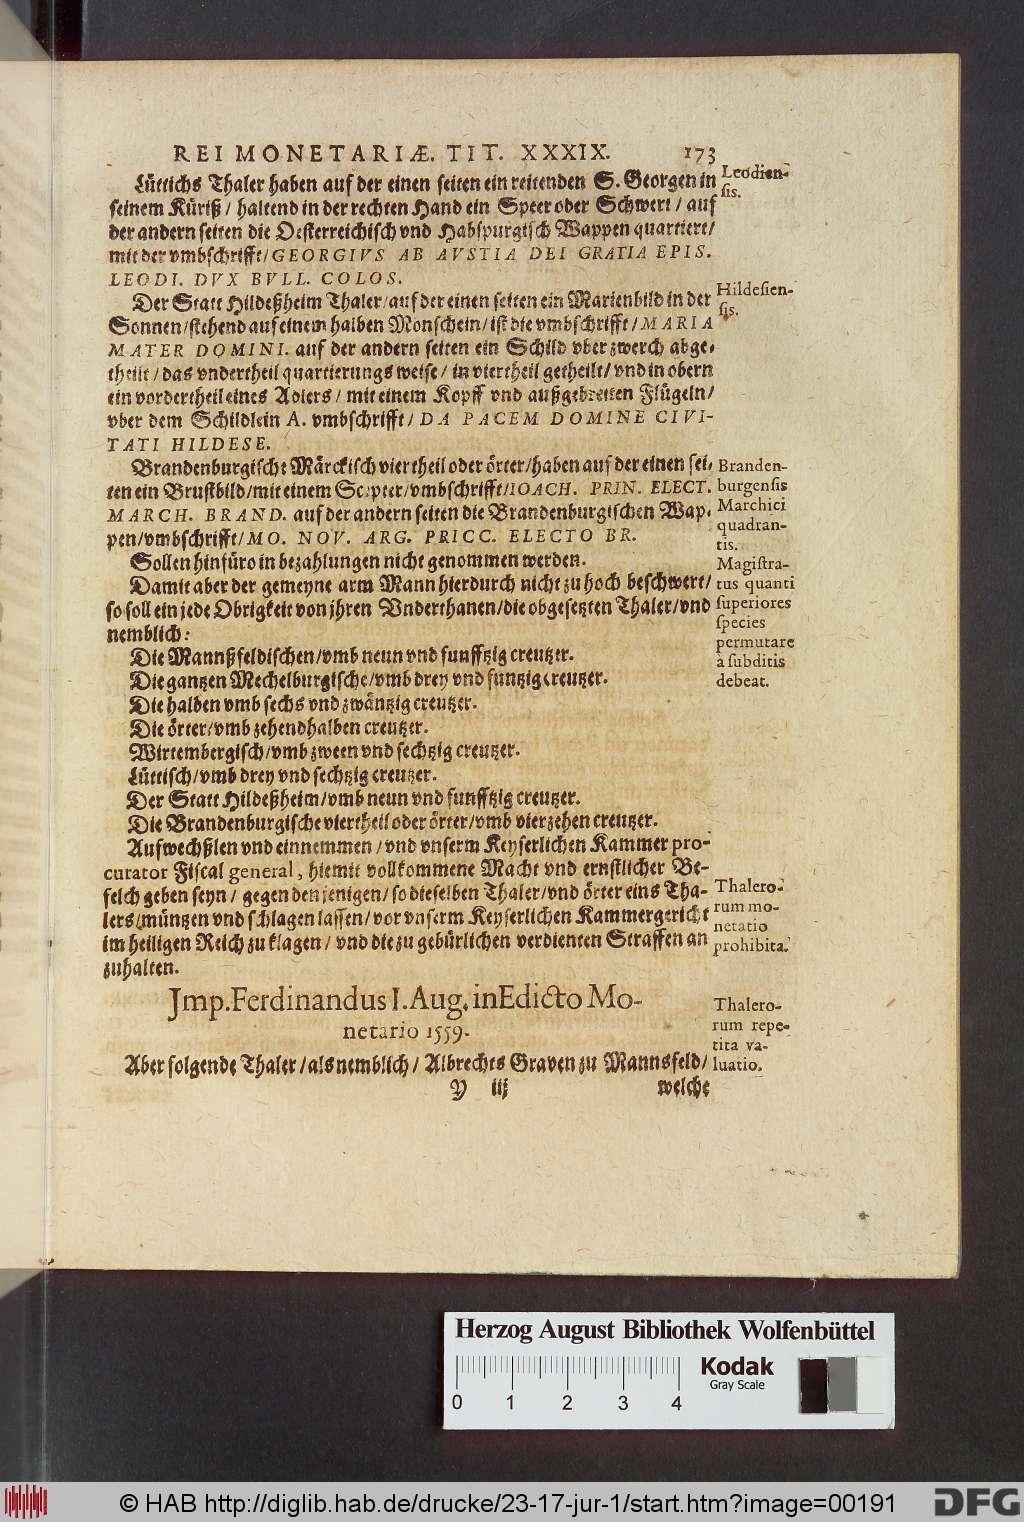 REI MONETARIÆ. TIT. XXXIX. 173
Lüttichs Thaler haben auf der einen seiten ein reitenden S. Georgen in
seinem Küriß / haltend in der rechten Hand ein Speer oder Schwert / auf
der andern seiten die Oesterreichisch vnd Habspurgisch Wappen quartiert/
mit der vmbschrifft/GEORGIVS AB AVSTIA DEI GRATIA EPIS.
LEODI. DVX BVLL. COLOS.
Leodien-
sis.
Der Statt Hildeßheim Thaler/auf der einen seiten ein Marienbild in der
Sonnen/stehend auf einem halben Monschein/ist die vmbschrifft/MARIA
MATER DOMINI. auf der andern seiten ein Schild vber zwerch abge-
theilt/das vndertheil quartierungs weise/ in viertheil getheilt/ vnd in obern
ein vordertheil eines Adlers / mit einem Kopff vnd außgebreiten Flügeln/
vber dem Schildlein A. vmbschrifft/ DA PACEM DOMINE CIVI-
TATI HILDESE.
Hildesien-
sis.
Brandenburgische Märckisch viertheil oder örter/haben auf der einen sei-
ten ein Brustbild/mit einem Scepter/vmbschrifft/IOACH. PRIN. ELECT.
MARCH. BRAND. auf der andern seiten die Brandenburgischen Wap-
pen/vmbschrifft/MO. NOV. ARG. PRICC. ELECTO BR.
Branden-
burgensis
Marchici
quadran-
tis.
Sollen hinfüro in bezahlungen nicht genommen werden.
Damit aber der gemeyne arm Mann hierdurch nicht zu hoch beschwert/
so soll ein jede Obrigkeit von jhren Vnderthanen/die obgesetzten Thaler/vnd
nemblich:
Magistra-
tus quanti
superiores
species
permutare
à subditis
debeat.
Die Mannßfeldischen/vmb neun vnd funfftzig creutzer.
Die gantzen Mechelburgische/vmb drey vnd funtzig creutzer.
Die halben vmb sechs vnd zwäntzig creutzer.
Die örter/vmb zehendhalben creutzer.
Wirtembergisch/vmb zween vnd sechtzig creutzer.
Lüttisch/vmb drey vnd sechtzig creutzer.
Der Statt Hildeßheim/vmb neun vnd funfftzig creutzer.
Die Brandenburgische viertheil oder örter/vmb vierzehen creutzer.
Aufwechßlen vnd einnemmen/ vnd vnserm Keyserlichen Kammer pro-
curator Fiscal general, hiemit vollkommene Macht vnd ernstlicher Be-
felch geben seyn / gegen den jenigen / so dieselben Thaler/vnd örter eins Tha-
lers/müntzen vnd schlagen lassen/ vor vnserm Keyserlichen Kammergericht
im heiligen Reich zu klagen / vnd die zu gebürlichen verdienten Straffen an
zuhalten.
Thalero-
rum mo-
netatio
prohibita.
Jmp. Ferdinandus I. Aug. in Edicto Mo-
netario 1559.
Aber folgende Thaler/als nemblich/ Albrechts Graven zu Mannsfeld/
Thalero-
rum repe-
tita va-
luatio.
Y iij welche
Herzog August Bibliothek Wolfenbüttel
Kodak
Gray Scale
0 1 2 3 4
© HAB http://diglib.hab.de/drucke/23-17-jur-1/start.htm?image=00191
DFG